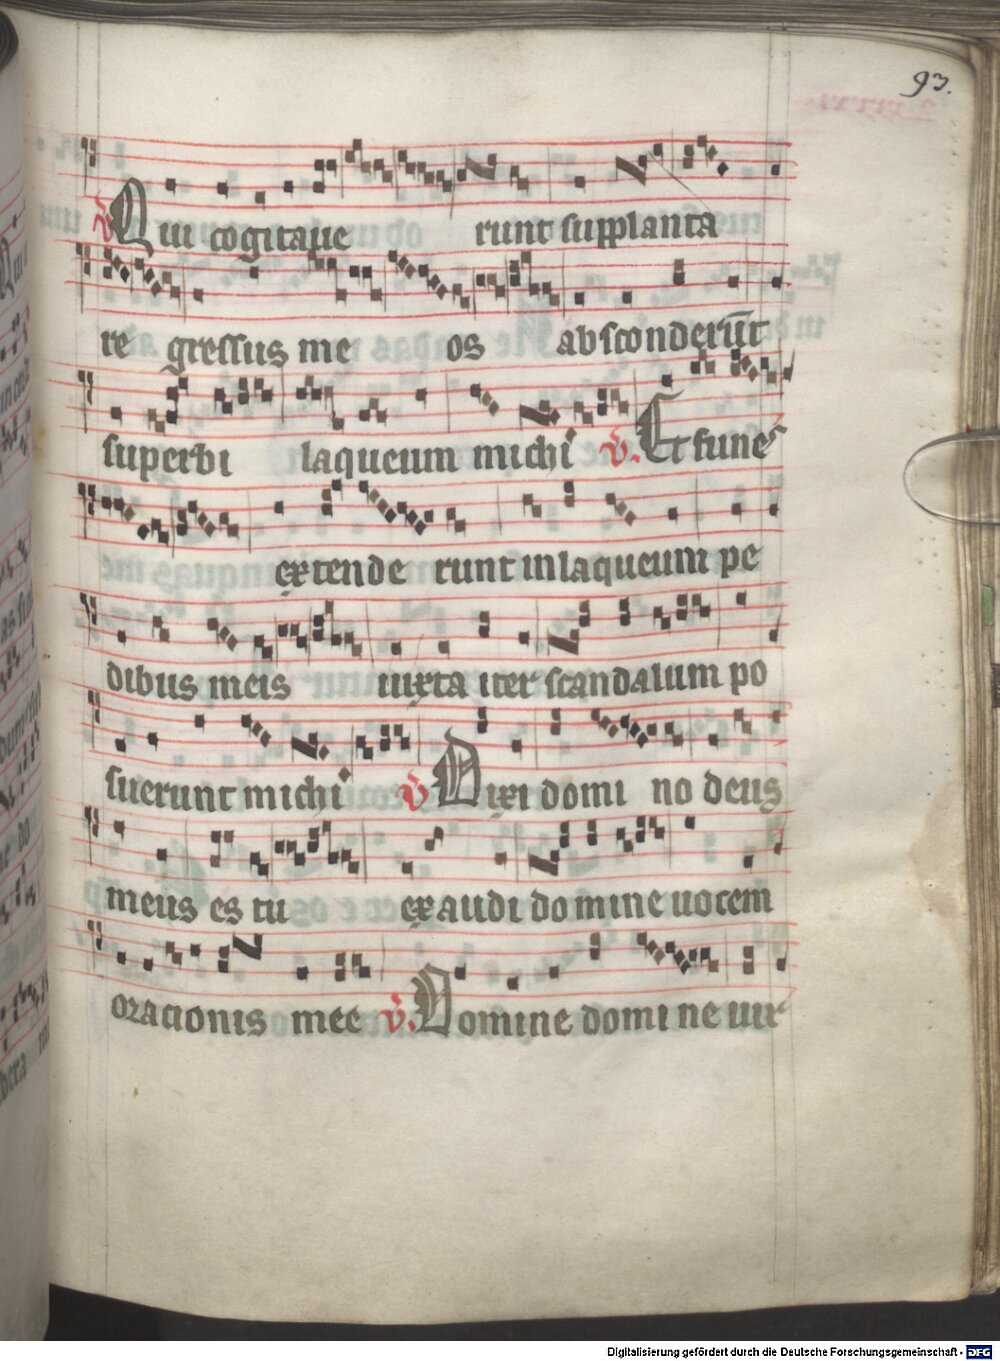 93.
v Qui cogitaue runt supplanta
re gressus me os absconderūt
superbi laqueum michi v. Et funes
extende runt in laqueum pe
dibus meis iuxta iter scandalum po
suerunt michi v Dixi domi no deus
meus es tu exaudi domine uocem
oracionis mee v. Domine domi ne uir
Digitalisierung gefördert durch die Deutsche Forschungsgemeinschaft - DFG